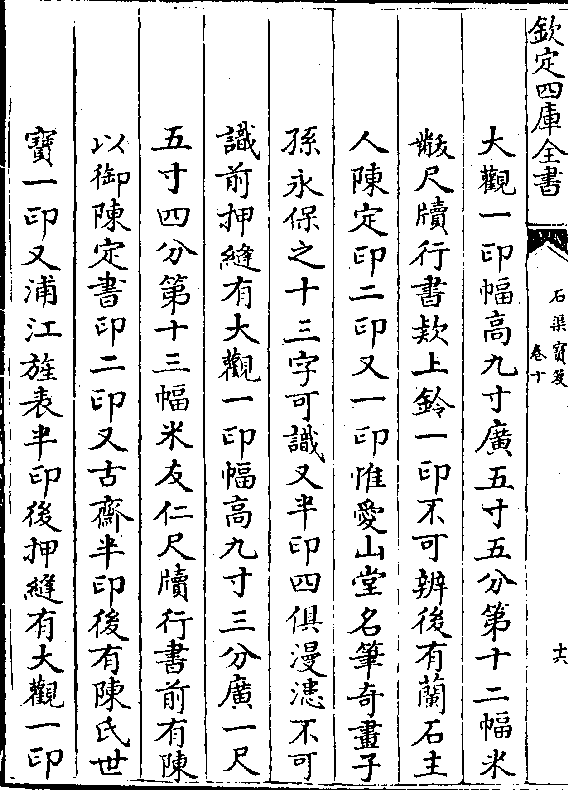 欽定四庫全書
石渠寶笈
卷十
十六
大觀一印幅高九寸廣五寸五分第十二幅米
黻尺牘行書欵上鈐一印不可辨後有蘭石主
人陳定印二印又一印惟愛山堂名筆奇畫子
孫永保之十三字可識又半印四俱漫漶不可
識前押縫有大觀一印幅高九寸三分廣一尺
五寸四分第十三幅米友仁尺牘行書前有陳
以御陳定書印二印又古齋半印後有陳氏世
寶一印又浦江旌表半印後押縫有大觀一印